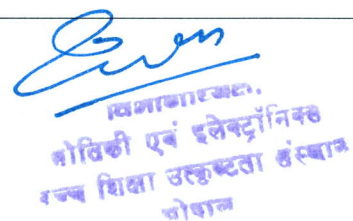 विभागाध्यक्ष,
भौतिकी एवं इलेक्ट्रॉनिक्स
उच्च शिक्षा उत्कृष्टता संस्थान
भोपाल